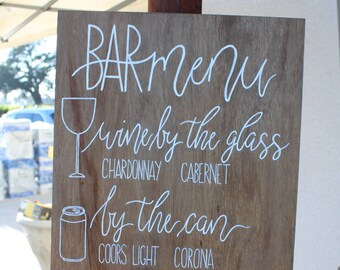 BAR menu
wine by the glass
CHARDONNAY CABERNET
by the can
COORS LIGHT CORONA